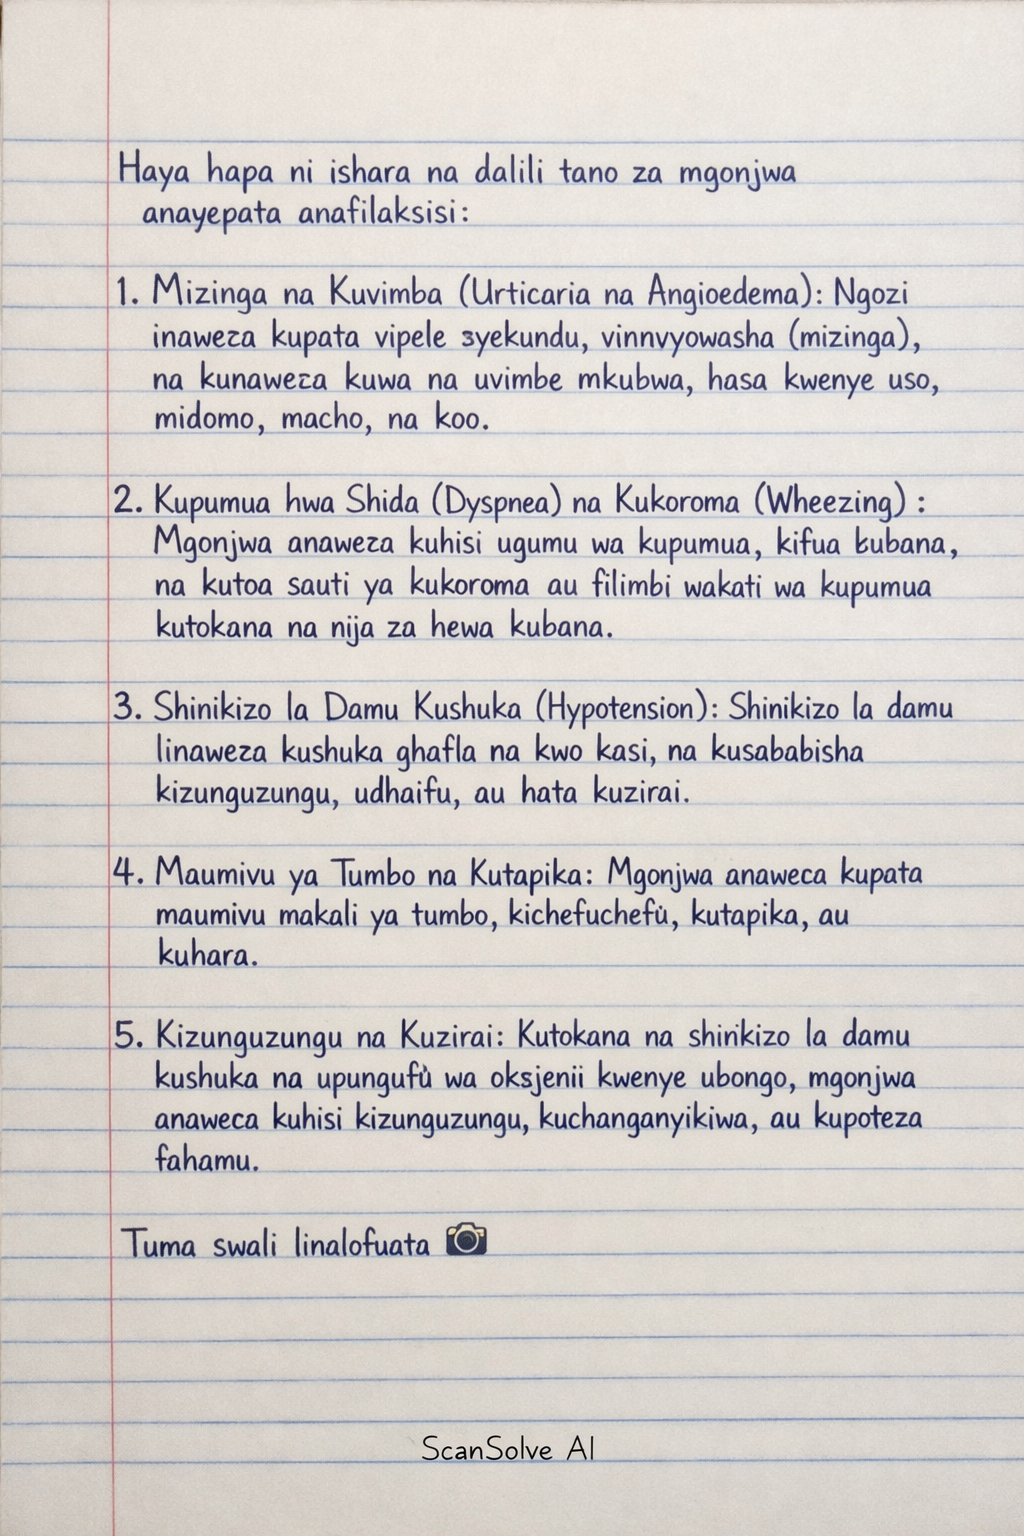 Haya hapa ni ishara na dalili tano za mgonjwa
anayepata anafilaksisi:
1. Mizinga na Kuvimba (Urticaria na Angioedema): Ngozi
inaweza kupata vipele syekundu, vinnvyowasha (mizinga),
na kunaweza kuwa na uvimbe mkubwa, hasa kwenye uso,
midomo, macho, na koo.
2. Kupumua hwa Shida (Dyspnea) na Kukoroma (Wheezing) :
Mgonjwa anaweza kuhisi ugumu wa kupumua, kifua kubana,
na kutoa sauti ya kukoroma au filimbi wakati wa kupumua
kutokana na nija za hewa kubana.
3. Shinikizo la Damu Kushuka (Hypotension): Shinikizo la damu
linaweza kushuka ghafla na kwo kasi, na kusababisha
kizunguzungu, udhaifu, au hata kuzirai.
4. Maumivu ya Tumbo na Kutapika: Mgonjwa anaweca kupata
maumivu makali ya tumbo, kichefuchefù, kutapika, au
kuhara.
5. Kizunguzungu na Kuzirai: Kutokana na shinikizo la damu
kushuka na upungufù wa oksjenii kwenye ubongo, mgonjwa
anaweca kuhisi kizunguzungu, kuchanganyikiwa, au kupoteza
fahamu.
Tuma swali linalofuata 📷
ScanSolve AI